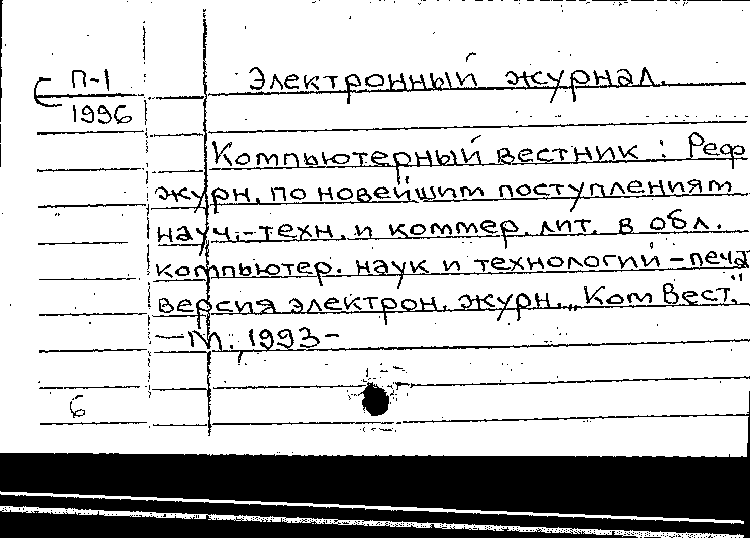 П-1 Электронный журнал.
1996
Компьютерный вестник : Реф
журн. по новейшим поступлениям
науч.-техн. и коммер. лит. в обл.
компьютер. наук и технологий - печа
версия электрон. журн. „Ком Вест."
— М., 1993-
6